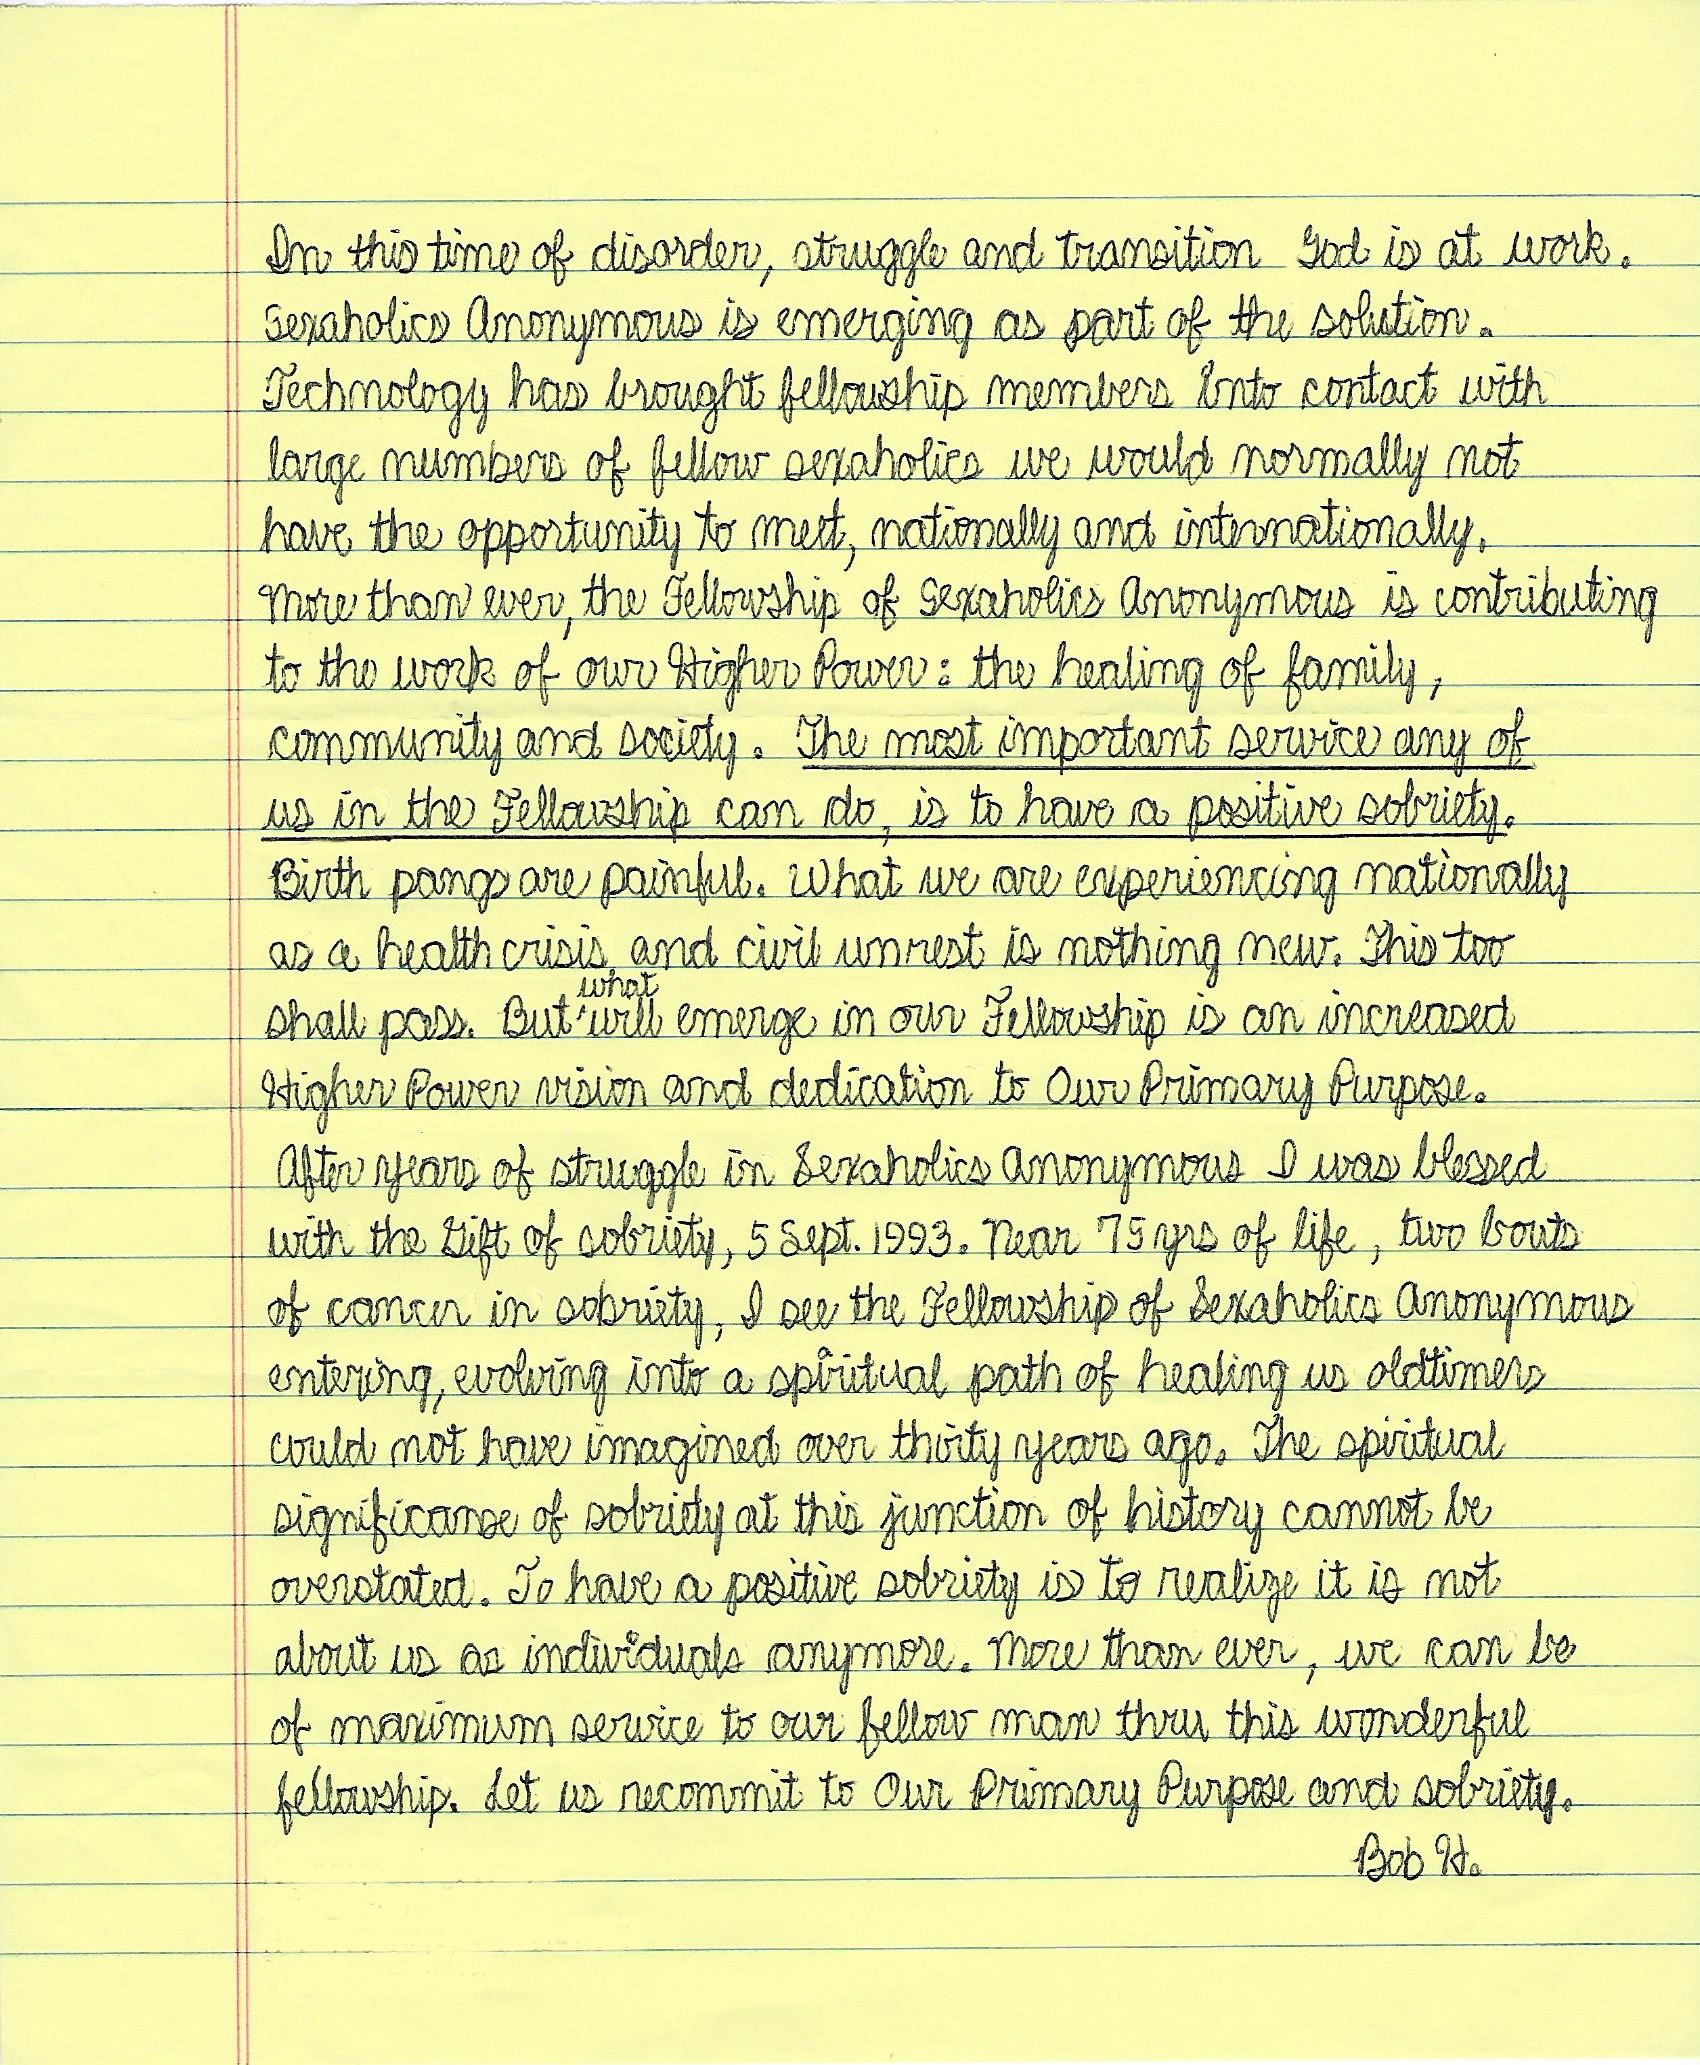 In this time of disorder, struggle and transition God is at work.
Sexaholics Anonymous is emerging as part of the solution.
Technology has brought fellowship members into contact with
large numbers of fellow sexaholics we would normally not
have the opportunity to meet, nationally and internationally.
More than ever, the Fellowship of Sexaholics Anonymous is contributing
to the work of our Higher Power: the healing of family,
community and society. The most important service any of
us in the Fellowship can do, is to have a positive sobriety.
Birth pangs are painful. What we are experiencing nationally
as a health crisis, and civil unrest is nothing new. This too
shall pass. But what will emerge in our Fellowship is an increased
Higher Power vision and dedication to Our Primary Purpose.
After years of struggle in Sexaholics Anonymous I was blessed
with the Gift of sobriety, 5 Sept. 1993. Near 75 yrs of life, two bouts
of cancer in sobriety, I see the Fellowship of Sexaholics Anonymous
entering, evolving into a spiritual path of healing us oldtimers
could not have imagined over thirty years ago. The spiritual
significance of sobriety at this junction of history cannot be
overstated. To have a positive sobriety is to realize it is not
about us as individuals anymore. More than ever, we can be
of maximum service to our fellow man thru this wonderful
fellowship. Let us recommit to Our Primary Purpose and sobriety.
Bob H.